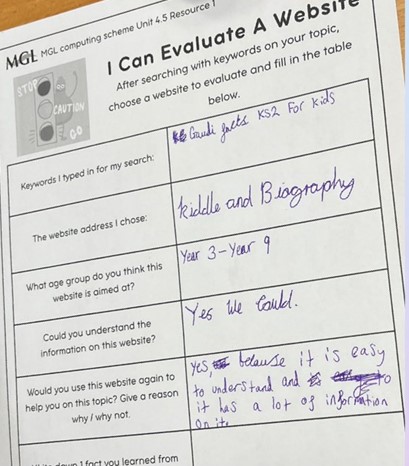 MGL MGL computing scheme Unit 4.5 Resource 1
I Can Evaluate A Website
After searching with keywords on your topic,
choose a website to evaluate and fill in the table
below.
STOP
CAUTION
GO
Keywords I typed in for my search:
Gaudi facts KS2 For kids
The website address I chose:
kiddle and Biography
What age group do you think this
website is aimed at?
Year 3-Year 9
Could you understand the
information on this website?
Yes We Could.
Would you use this website again to
help you on this topic? Give a reason
why / why not.
yes, because it is easy
to understand and to
it has a lot of information
on it.
down 1 fact you learned from